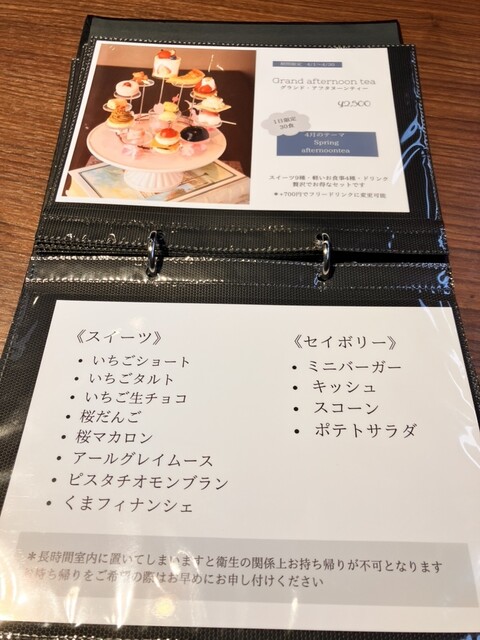 Grand afternoon tea
グランド・アフタヌーンティー
¥2,500
1日限定
20食
4月のテーマ
Spring
afternoontea
スイーツ9種・軽いお食事4種・ドリンク
贅沢でお得なセットです
*+700円でフリードリンクに変更可能
《スイーツ》
• いちごショート
• いちごタルト
• いちご生チョコ
• 桜だんご
• 桜マカロン
• アールグレイムース
• ピスタチオモンブラン
• くまフィナンシェ
《セイボリー》
• ミニバーガー
• キッシュ
• スコーン
• ポテトサラダ
*長時間室内に置いてしまいますと衛生の関係上お持ち帰りが不可となります
お持ち帰りをご希望の際はお早めにお申し付けください